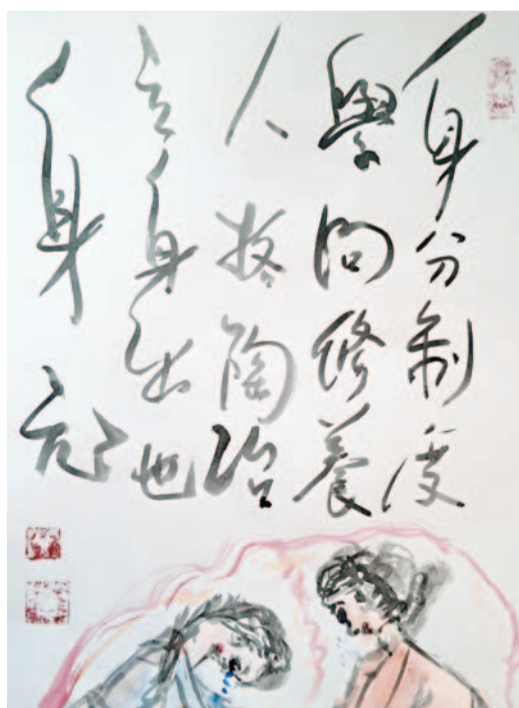 身分制度
學問修養
人格陶冶
立身出世
身